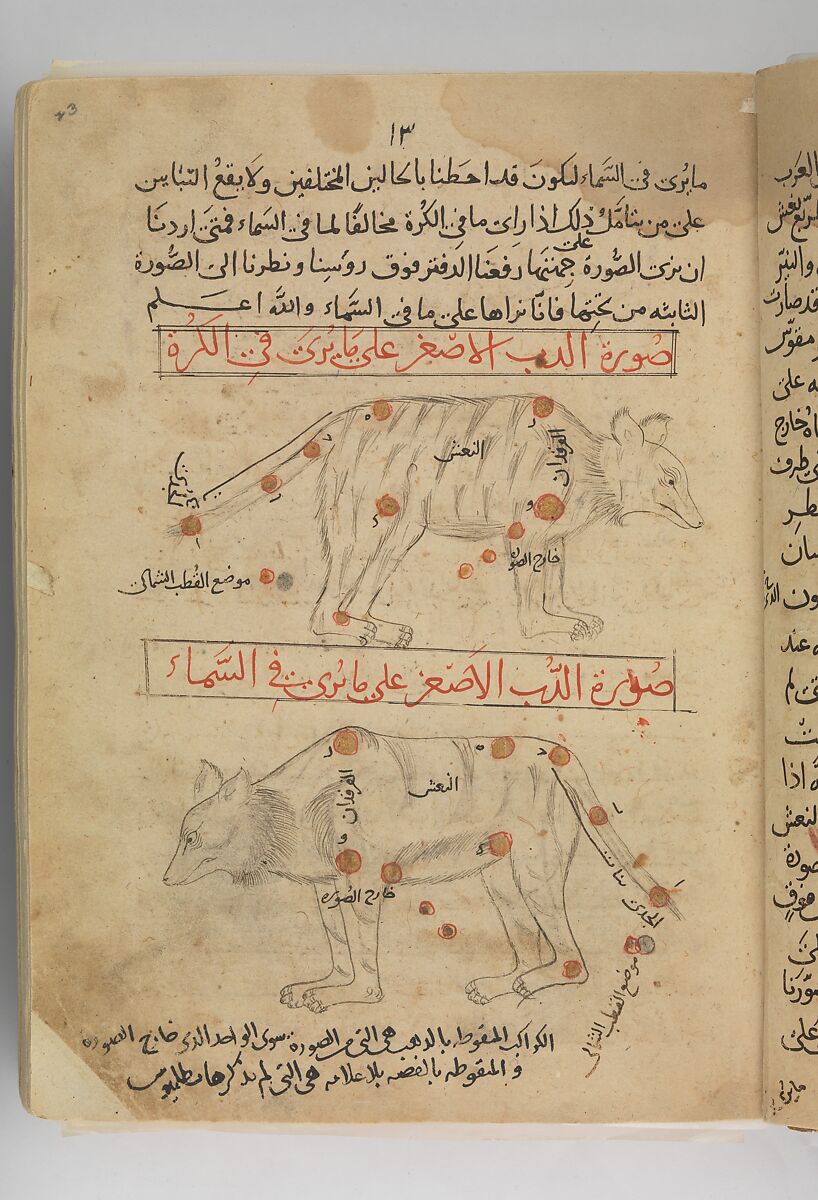 ١٣
ما يرى في السماء لنكون قد احطنا بالحالين المختلفين ولا يقع التباين
على من يتامل ذلك اذا راى ما في الكرة مخالفا لما في السماء فمتى اردنا
ان نرى الصورة على جهتها رفعنا الدفتر فوق رؤسنا ونظرنا الى الصورة
الثانية من تحتها فانا نراها على ما في السماء والله اعلم
صورة الدب الاصغر على ما يرى في الكرة
النعش
الفرقدان
الجدي
خارج الصورة
موضع القطب الشمالي
صورة الدب الاصغر على ما يرى في السماء
النعش
الفرقدان
خارج الصورة
الجدي بنات
موضع القطب الشمالي
الكواكب المنقوطه بالذهب هي التي من الصورة سوى الواحد الذي خارج الصورة
و المنقوطه بالفضه بلا علامه هي التي لم يذكرها بطلميوس
العرب
نعش
والنير
مقوس
ه على
خارج
طرف
سان
ه عند
لم
اذا
النعش
صورة
على
ما يرى